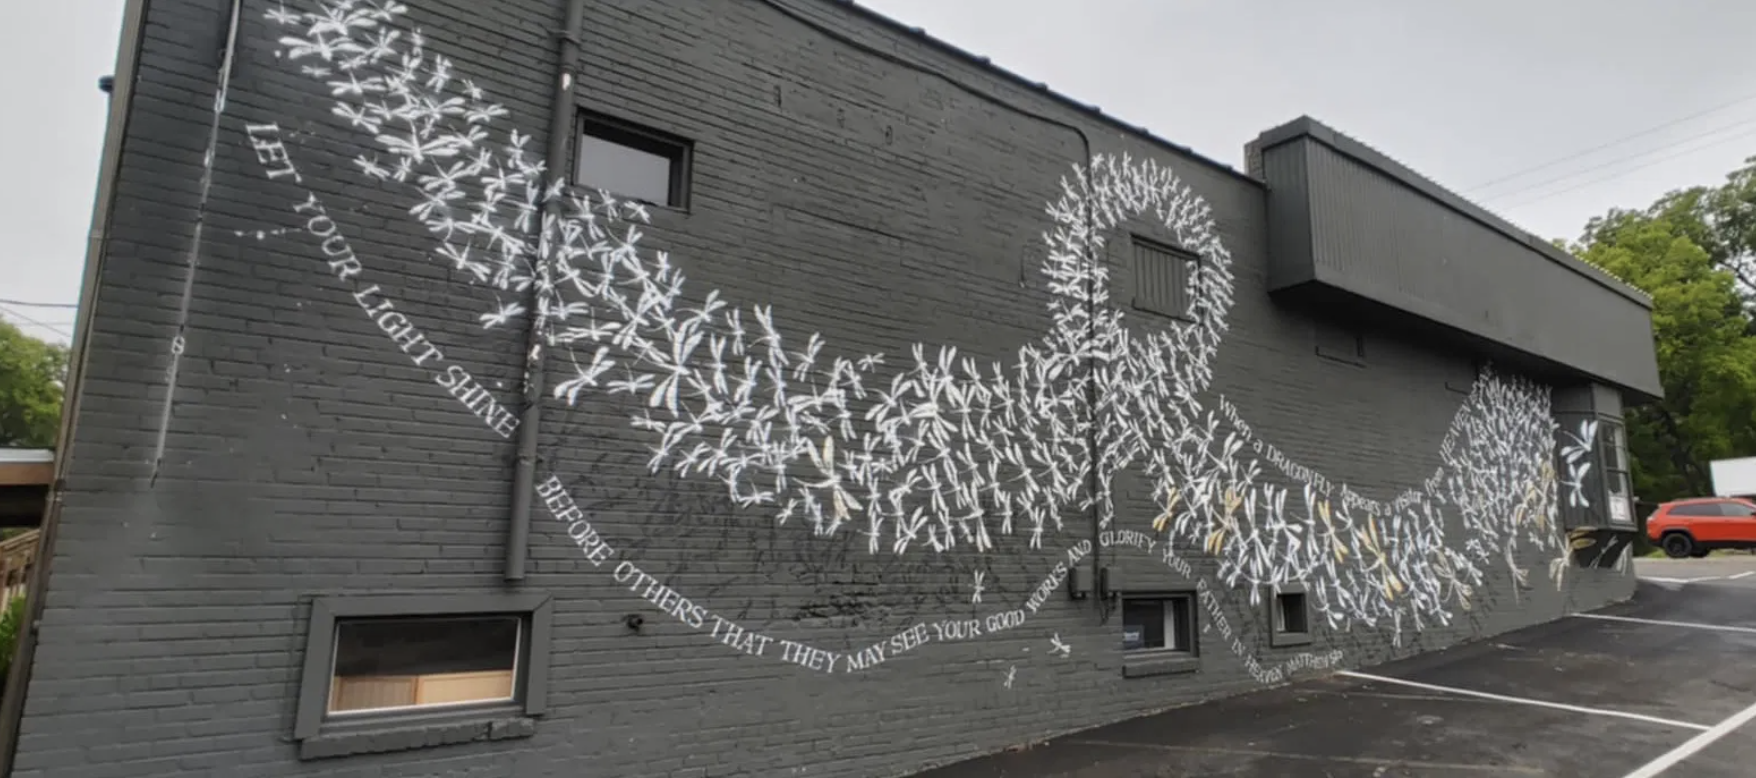 LET YOUR LIGHT SHINE
BEFORE OTHERS THAT THEY MAY SEE YOUR GOOD WORKS AND GLORIFY YOUR FATHER IN HEAVEN MATTHEW 5:16
When a DRAGONFLY Appears a visitor from HEAVEN